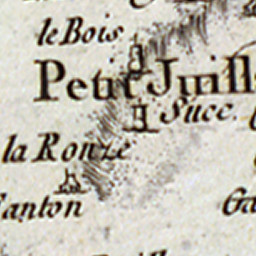 le Bois
Petit Juill
Succ.
la Ronze
anton
Ga